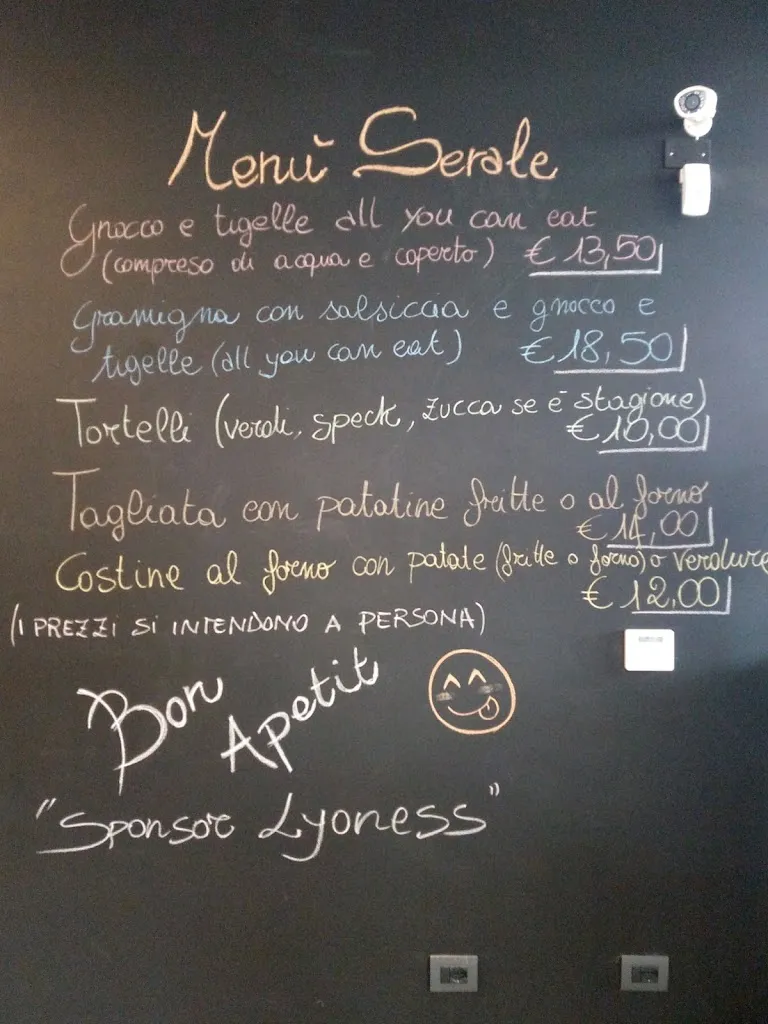 Menù Serale
Gnocco e tigelle all you can eat
(compreso di acqua e coperto) € 13,50
Gramigna con salsiccia e gnocco e
tigelle (all you can eat) € 18,50
Tortelli (verdi, speck, zucca se è stagione)
€ 10,00
Tagliata con patatine fritte o al forno
€ 14,00
Costine al forno con patate (fritte o forno) o verdure
€ 12,00
(I PREZZI SI INTENDONO A PERSONA)
Bon
Apetit
"Sponsor Lyoness"